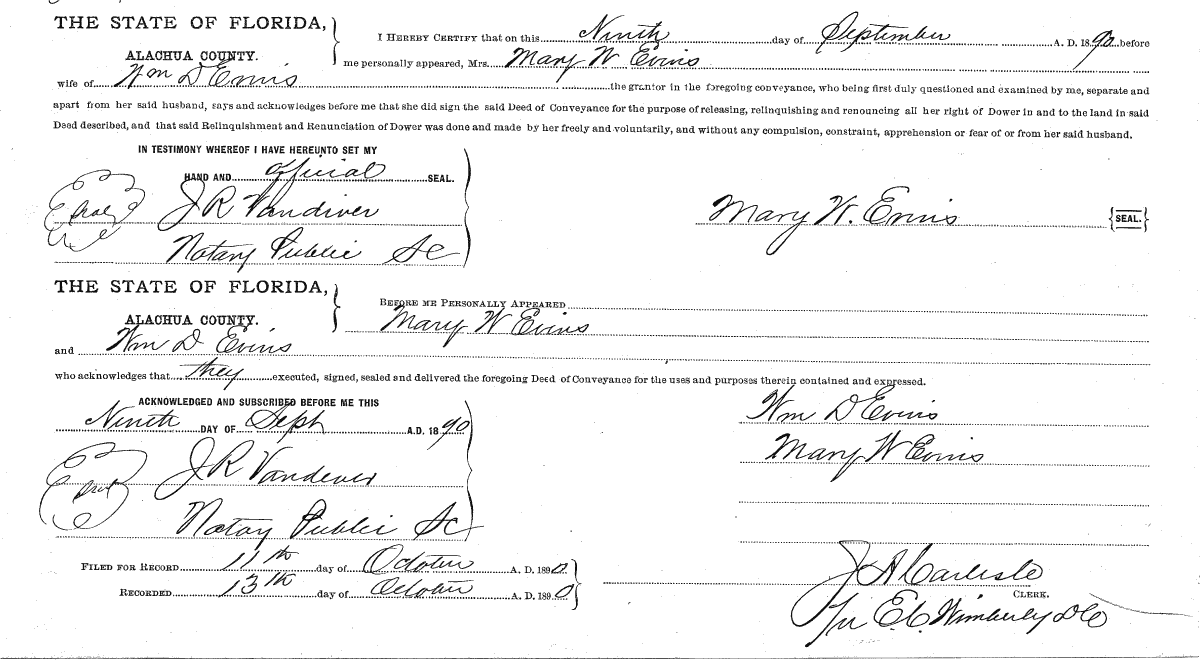 THE STATE OF FLORIDA,
ALACHUA COUNTY.
I HEREBY CERTIFY that on this Ninth day of September A. D. 1890 before
me personally appeared, Mrs. Mary W Evins
wife of Wm D Evins the grantor in the foregoing conveyance, who being first duly questioned and examined by me, separate and
apart from her said husband, says and acknowledges before me that she did sign the said Deed of Conveyance for the purpose of releasing, relinquishing and renouncing all her right of Dower in and to the land in said
Deed described, and that said Relinquishment and Renunciation of Dower was done and made by her freely and voluntarily, and without any compulsion, constraint, apprehension or fear of or from her said husband.
IN TESTIMONY WHEREOF I HAVE HEREUNTO SET MY
HAND AND official SEAL.
Seal J R Vandiver
Notary Public SC
Mary W. Evins {SEAL.}
THE STATE OF FLORIDA,
ALACHUA COUNTY.
BEFORE ME PERSONALLY APPEARED
Mary W Evins
and Wm D Evins
who acknowledges that they executed, signed, sealed and delivered the foregoing Deed of Conveyance for the uses and purposes therein contained and expressed.
ACKNOWLEDGED AND SUBSCRIBED BEFORE ME THIS
Ninth DAY OF Sept A.D. 1890
Seal J R Vandiver
Notary Public SC
Wm D Evins
Mary W Evins
FILED FOR RECORD 11th day of October A. D. 1890.
RECORDED 13th day of October A. D. 1890
J A Carlisle
CLERK.
Per E.C. Wimberly DC